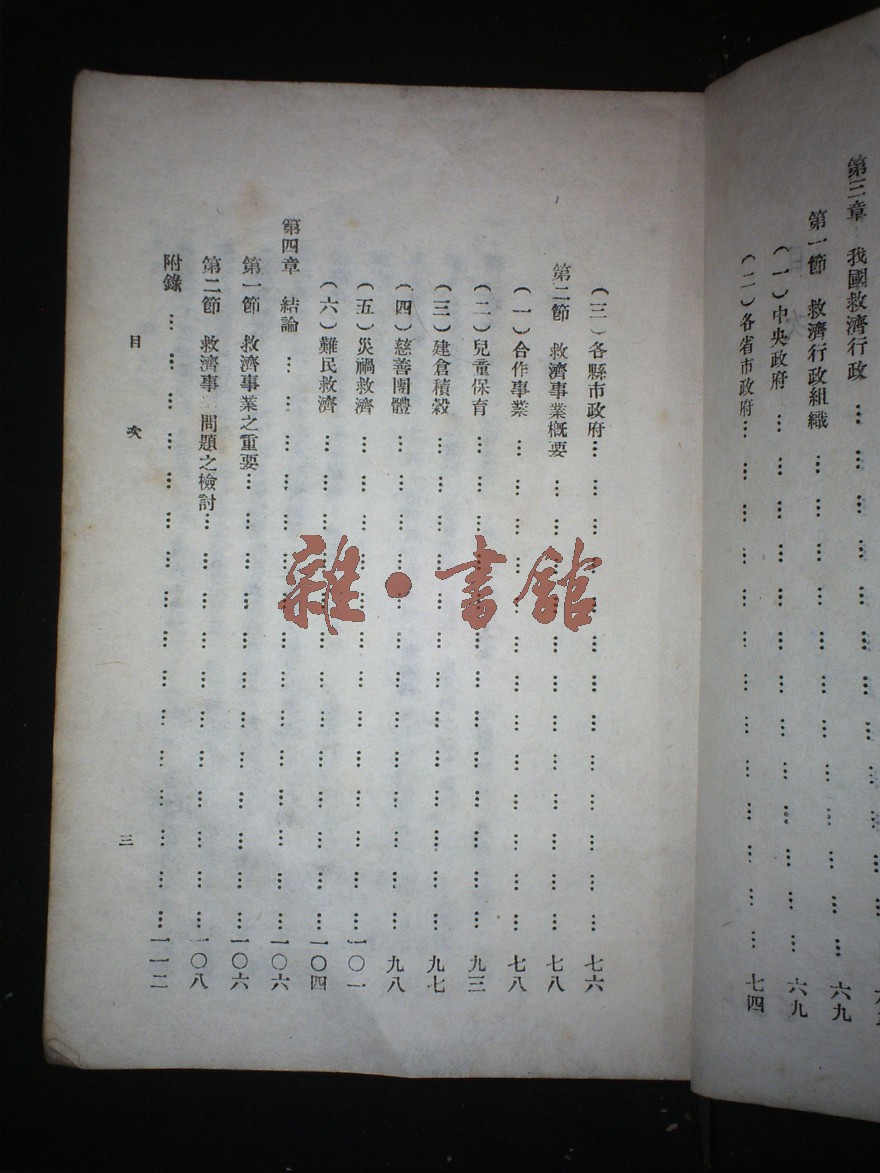 第三章 我國救濟行政 … … … … … … … … … …
第一節 救濟行政組織 … … … … … … … … 六九
(一)中央政府 … … … … … … … … 六九
(二)各省市政府 … … … … … … … … 七四
(三)各縣市政府 … … … … … … … … 七六
第二節 救濟事業概要 … … … … … … … 七八
(一)合作事業 … … … … … … … … 七八
(二)兒童保育 … … … … … … … … 九三
(三)建倉積穀 … … … … … … … … 九七
(四)慈善團體 … … … … … … … … 九八
(五)災禍救濟 … … … … … … … … 一〇一
(六)難民救濟 … … … … … … … … 一〇四
第四章 結論 … … … … … … … … … 一〇六
第一節 救濟事業之重要 … … … … … … … 一〇六
第二節 救濟事 問題之檢討 … … … … … … … 一〇八
附錄 … … … … … … … … … 一一二
目次
三
雜·書館